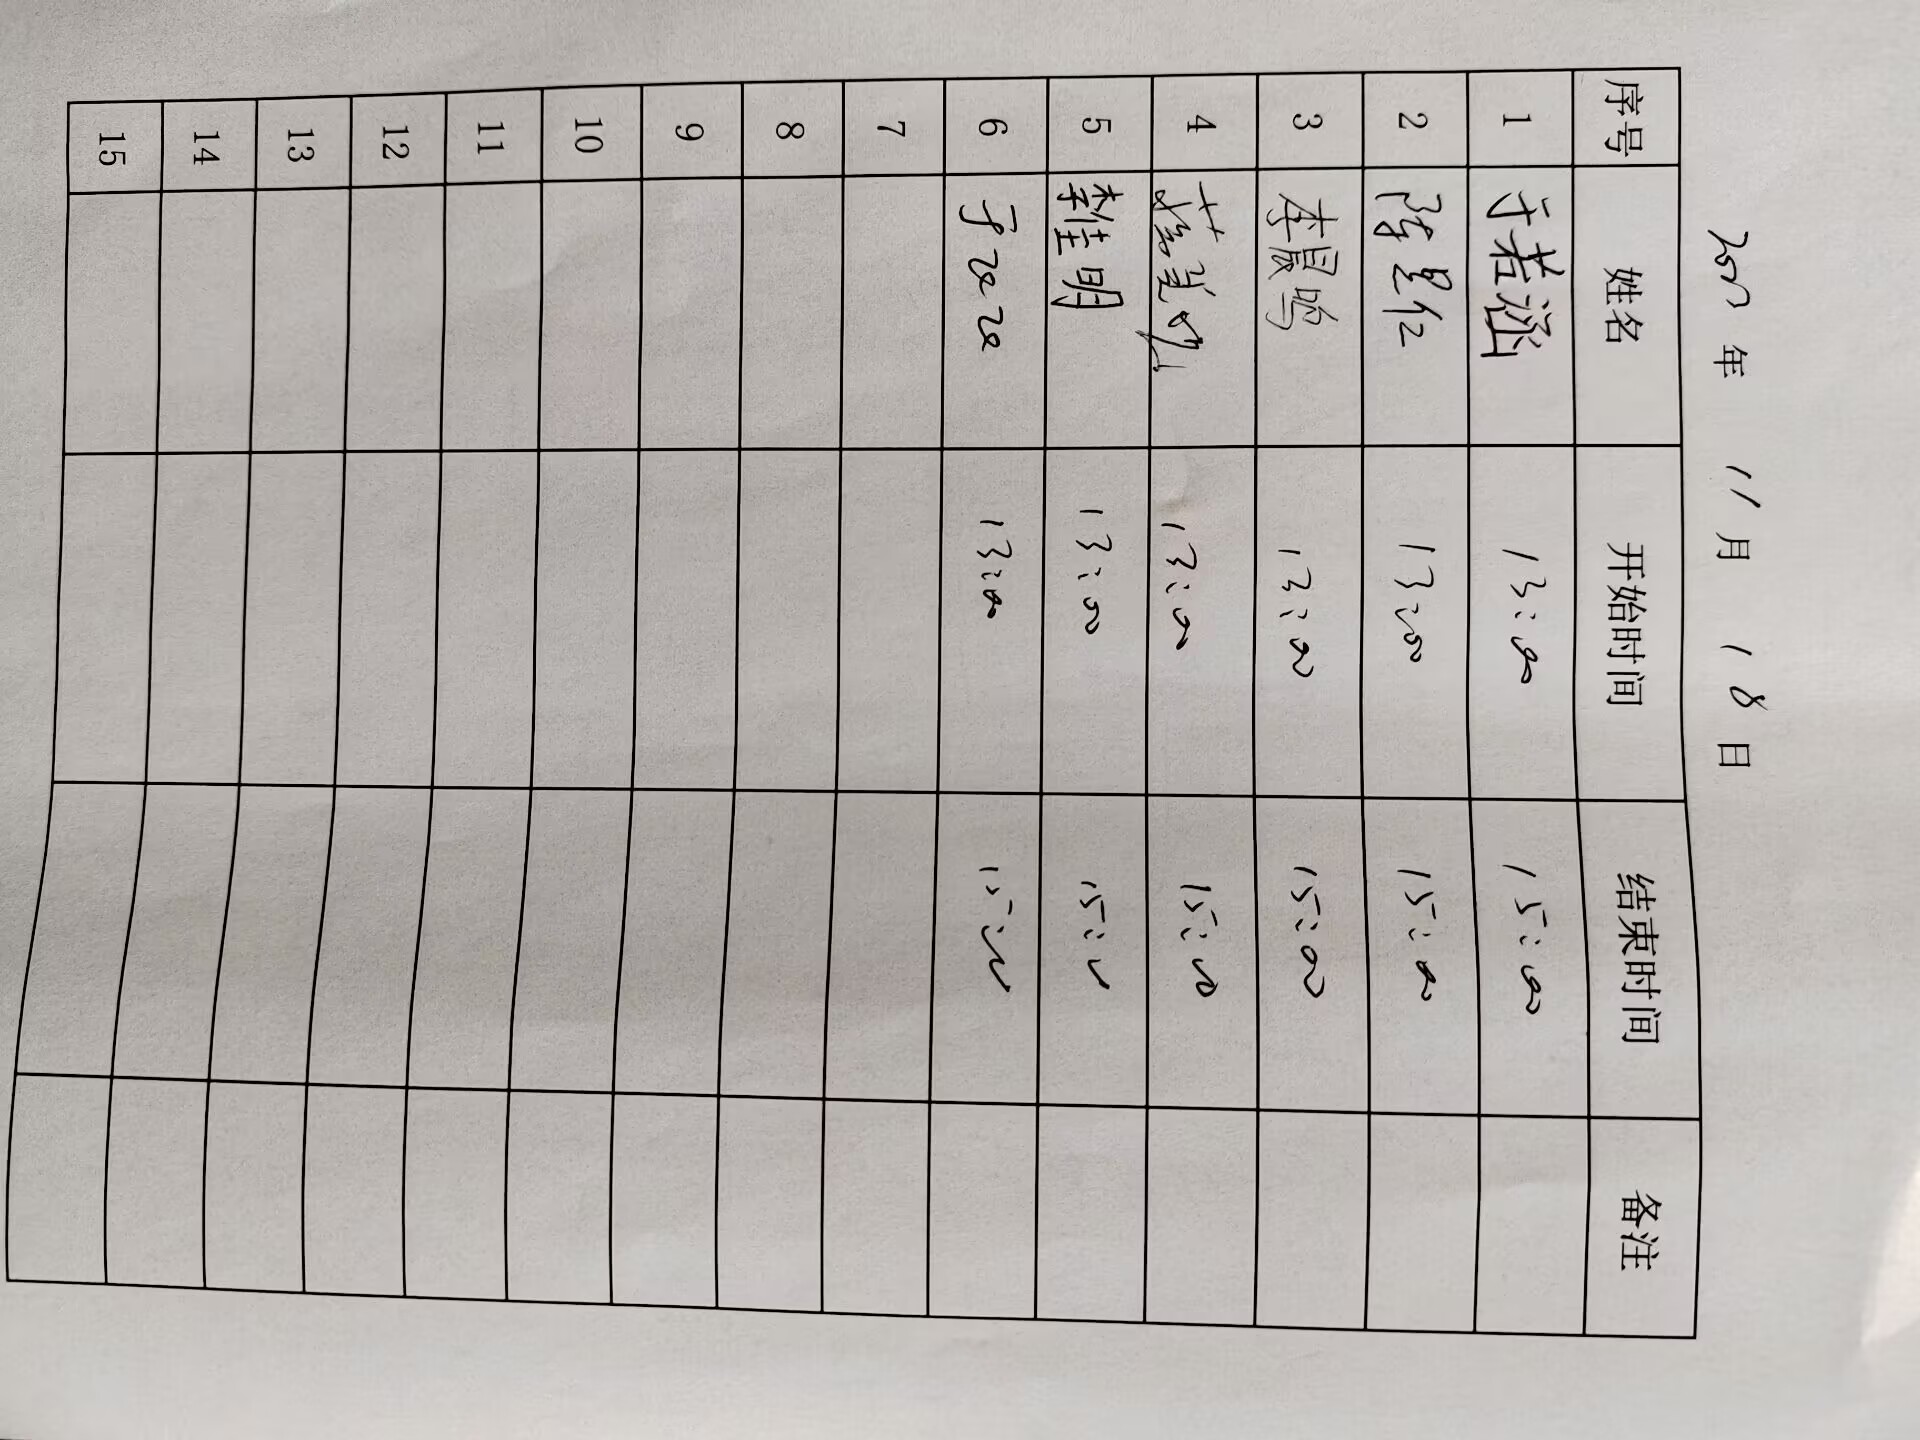 年 11月 18日
序号 姓名 开始时间 结束时间 备注
1 于若涵 13:00 15:00
2 陈星仁 13:00 15:00
3 李晨鸣 13:00 15:00
4 13:00 15:00
5 桂明 13:00 15:00
6 13:00 15:00
7
8
9
10
11
12
13
14
15